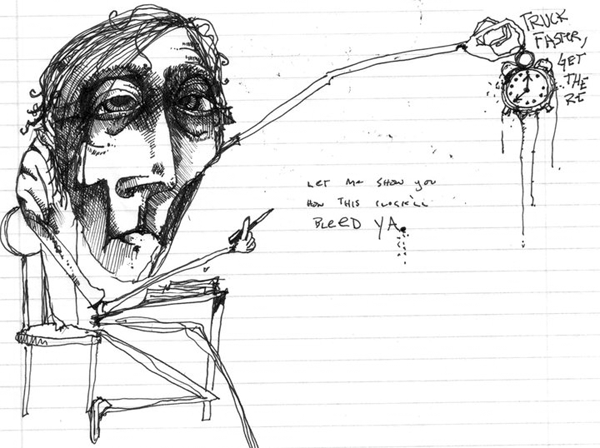 TRUCK
FASTER,
GET
THE
RE
LET ME SHOW YOU
HOW THIS CLOCK'LL
BLEED YA.